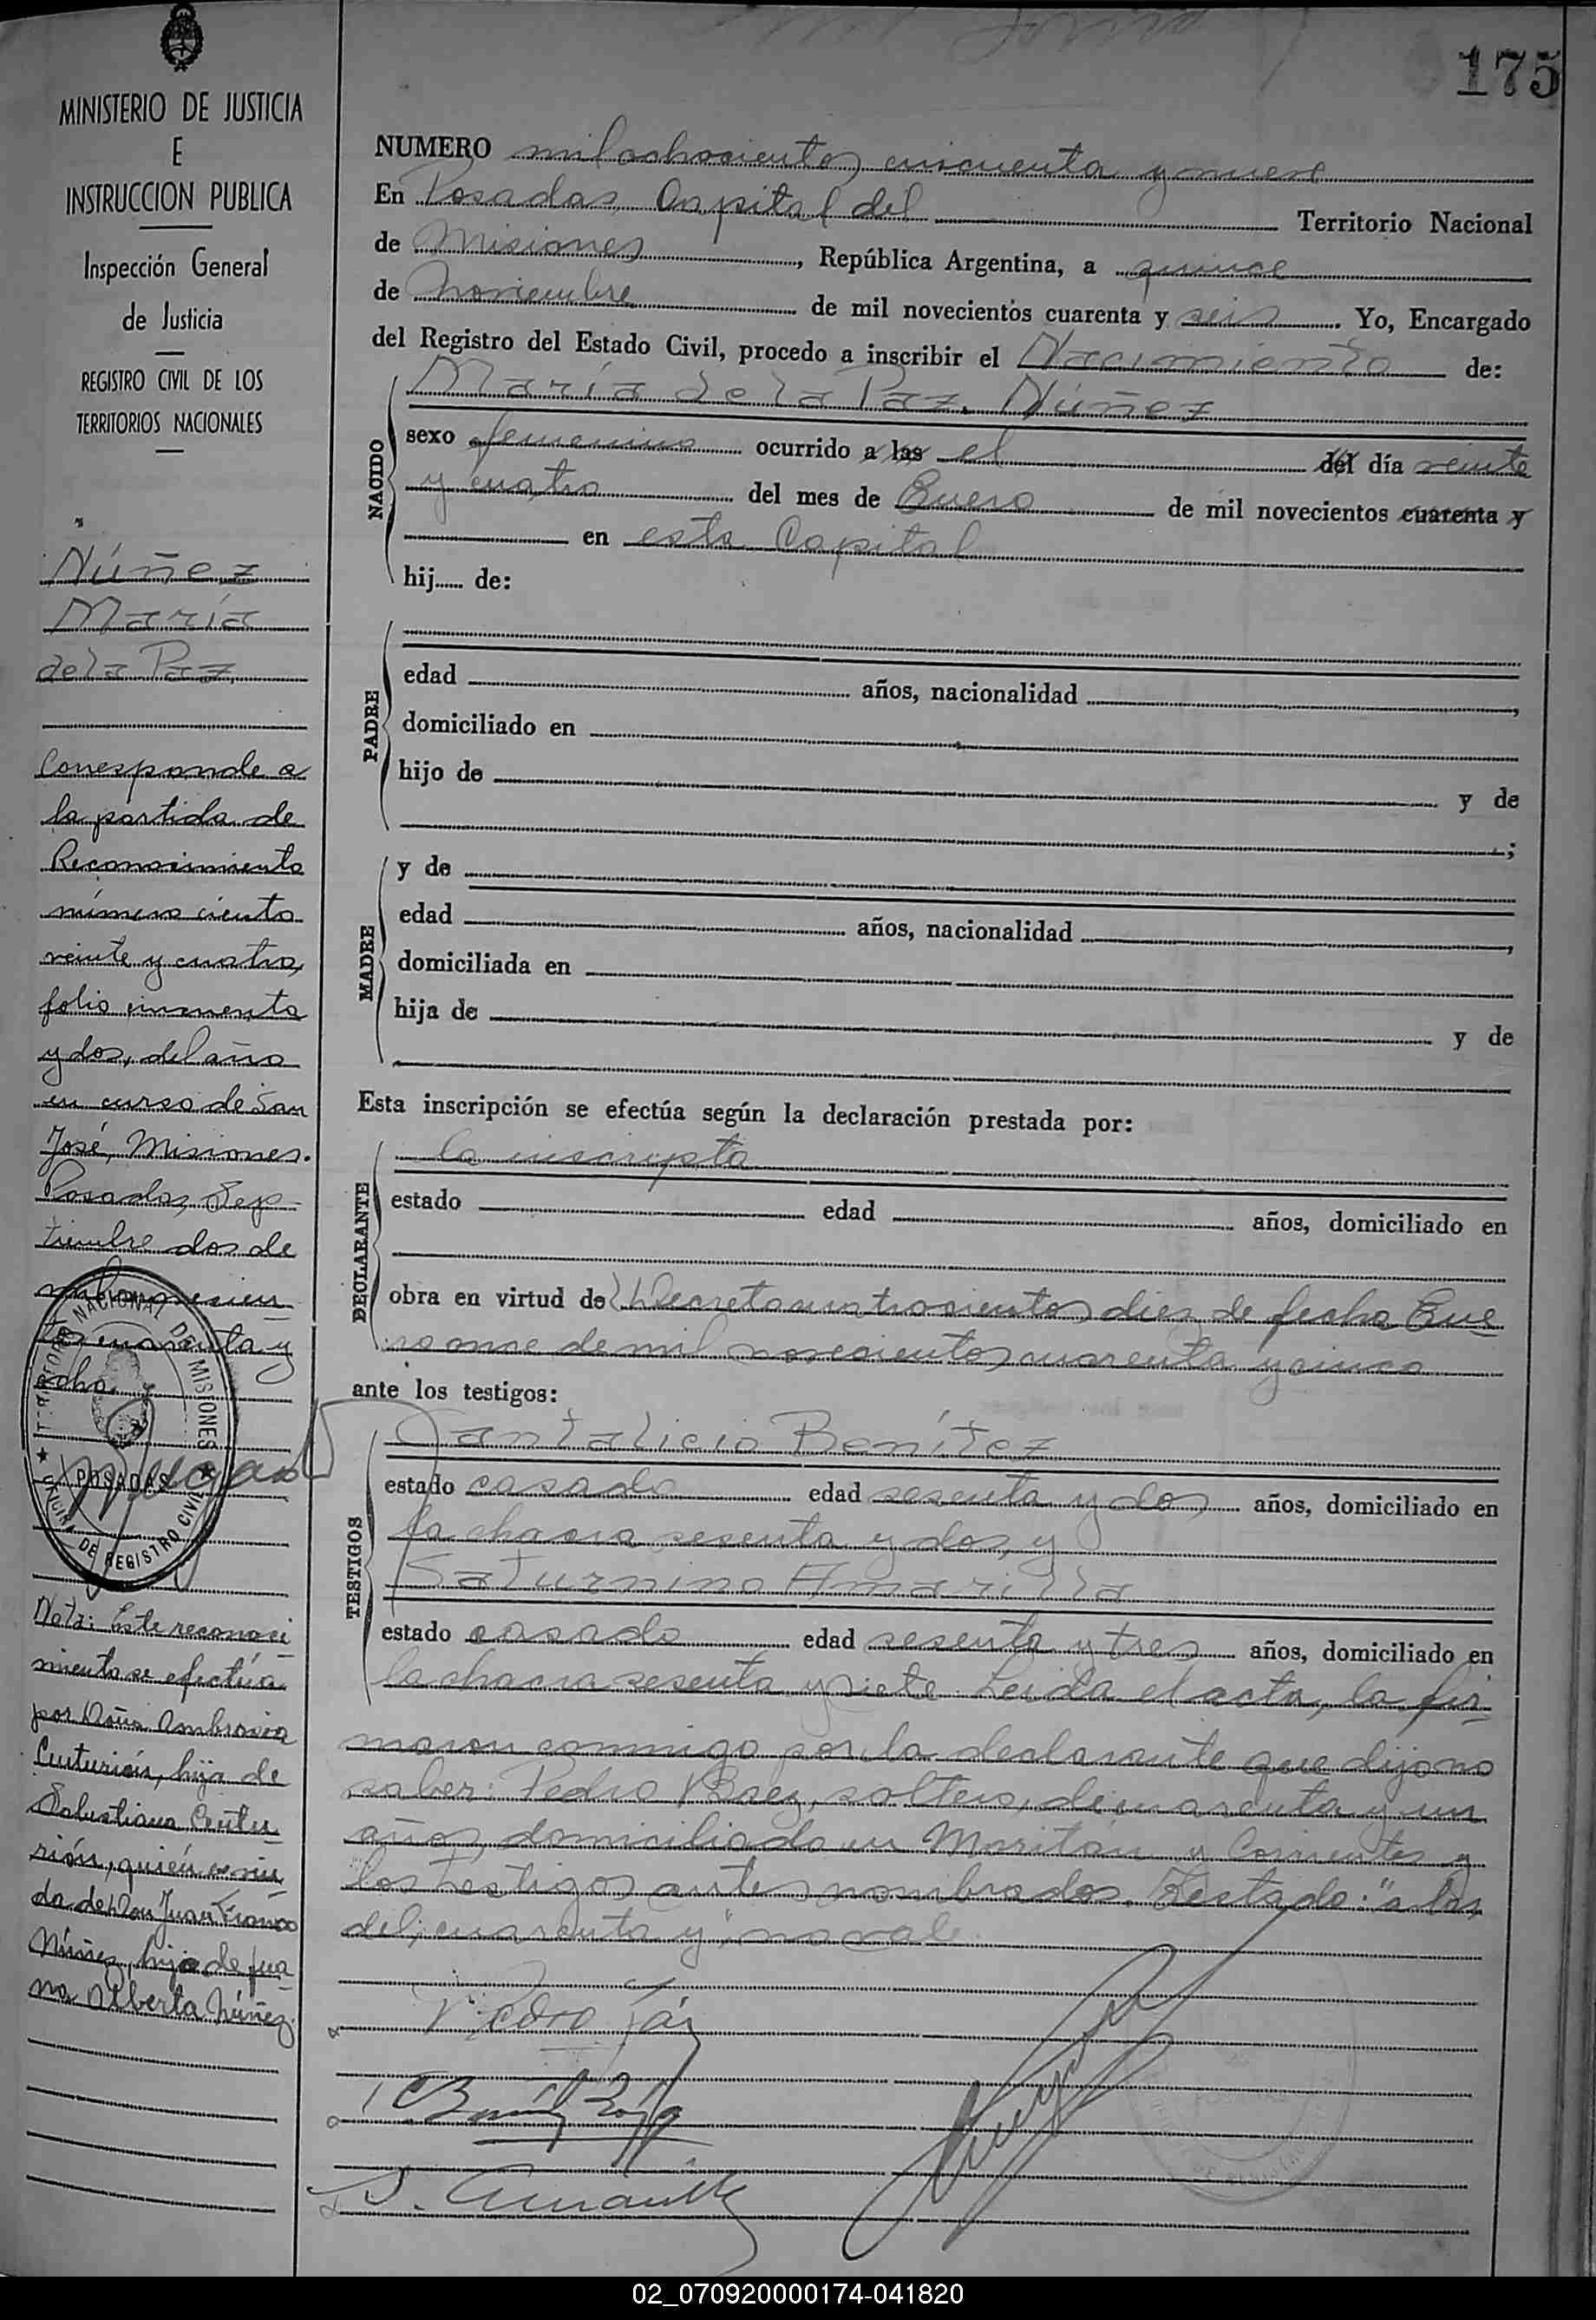 175
MINISTERIO DE JUSTICIA
E
INSTRUCCION PUBLICA
Inspección General
de Justicia
REGISTRO CIVIL DE LOS
TERRITORIOS NACIONALES
Núñez
María
de la Paz
Corresponde a
la partida de
Reconocimiento
número ciento
veinte y cuatro,
folio cincuenta
y dos, del año
en curso de San
José, Misiones.
Posadas, Sep-
tiembre dos de
mil novecien-
tos cuarenta y
ocho.
TERRITORIO NACIONAL DE MISIONES
POSADAS
OFICINA DE REGISTRO CIVIL
Nota: Este reconoci-
miento se efectúa
por Doña Ambrosia
Centurión, hija de
Salustiana Centu-
rión, quién es viu-
da de Don Juan Franco
Núñez, hijo de Jua-
na Alberta Núñez.
NUMERO mil ochocientos cincuenta y nueve
En Posadas, Capital del Territorio Nacional
de Misiones, República Argentina, a quince
de Noviembre de mil novecientos cuarenta y seis. Yo, Encargado
del Registro del Estado Civil, procedo a inscribir el Nacimiento de:
NACIDO
María de la Paz Núñez
sexo femenino ocurrido a las el del día veinte
y cuatro del mes de Enero de mil novecientos cuarenta y
en esta Capital
hij de:
PADRE
edad años, nacionalidad ,
domiciliado en
hijo de y de
;
MADRE
y de
edad años, nacionalidad ,
domiciliada en
hija de y de
Esta inscripción se efectúa según la declaración prestada por:
DECLARANTE
la inscripta
estado edad años, domiciliado en
obra en virtud de Decreto cuatrocientos diez de fecha Ene-
ro once de mil novecientos cuarenta y cinco
ante los testigos:
TESTIGOS
Tantalicio Benítez
estado casado edad sesenta y dos años, domiciliado en
la chacra sesenta y dos, y
Saturnino Amarilla
estado casado edad sesenta y tres años, domiciliado en
la chacra sesenta y siete. Leida el acta, la fir-
maron conmigo por la declarante que dijo no
saber: Pedro Báez, soltero, de cuarenta y un
años, domiciliado en Moritán y Corrientes y
los testigos antes nombrados. Testado: "a las,
del, cuarenta y", no vale.
S. Amarilla
02_070920000174-041820